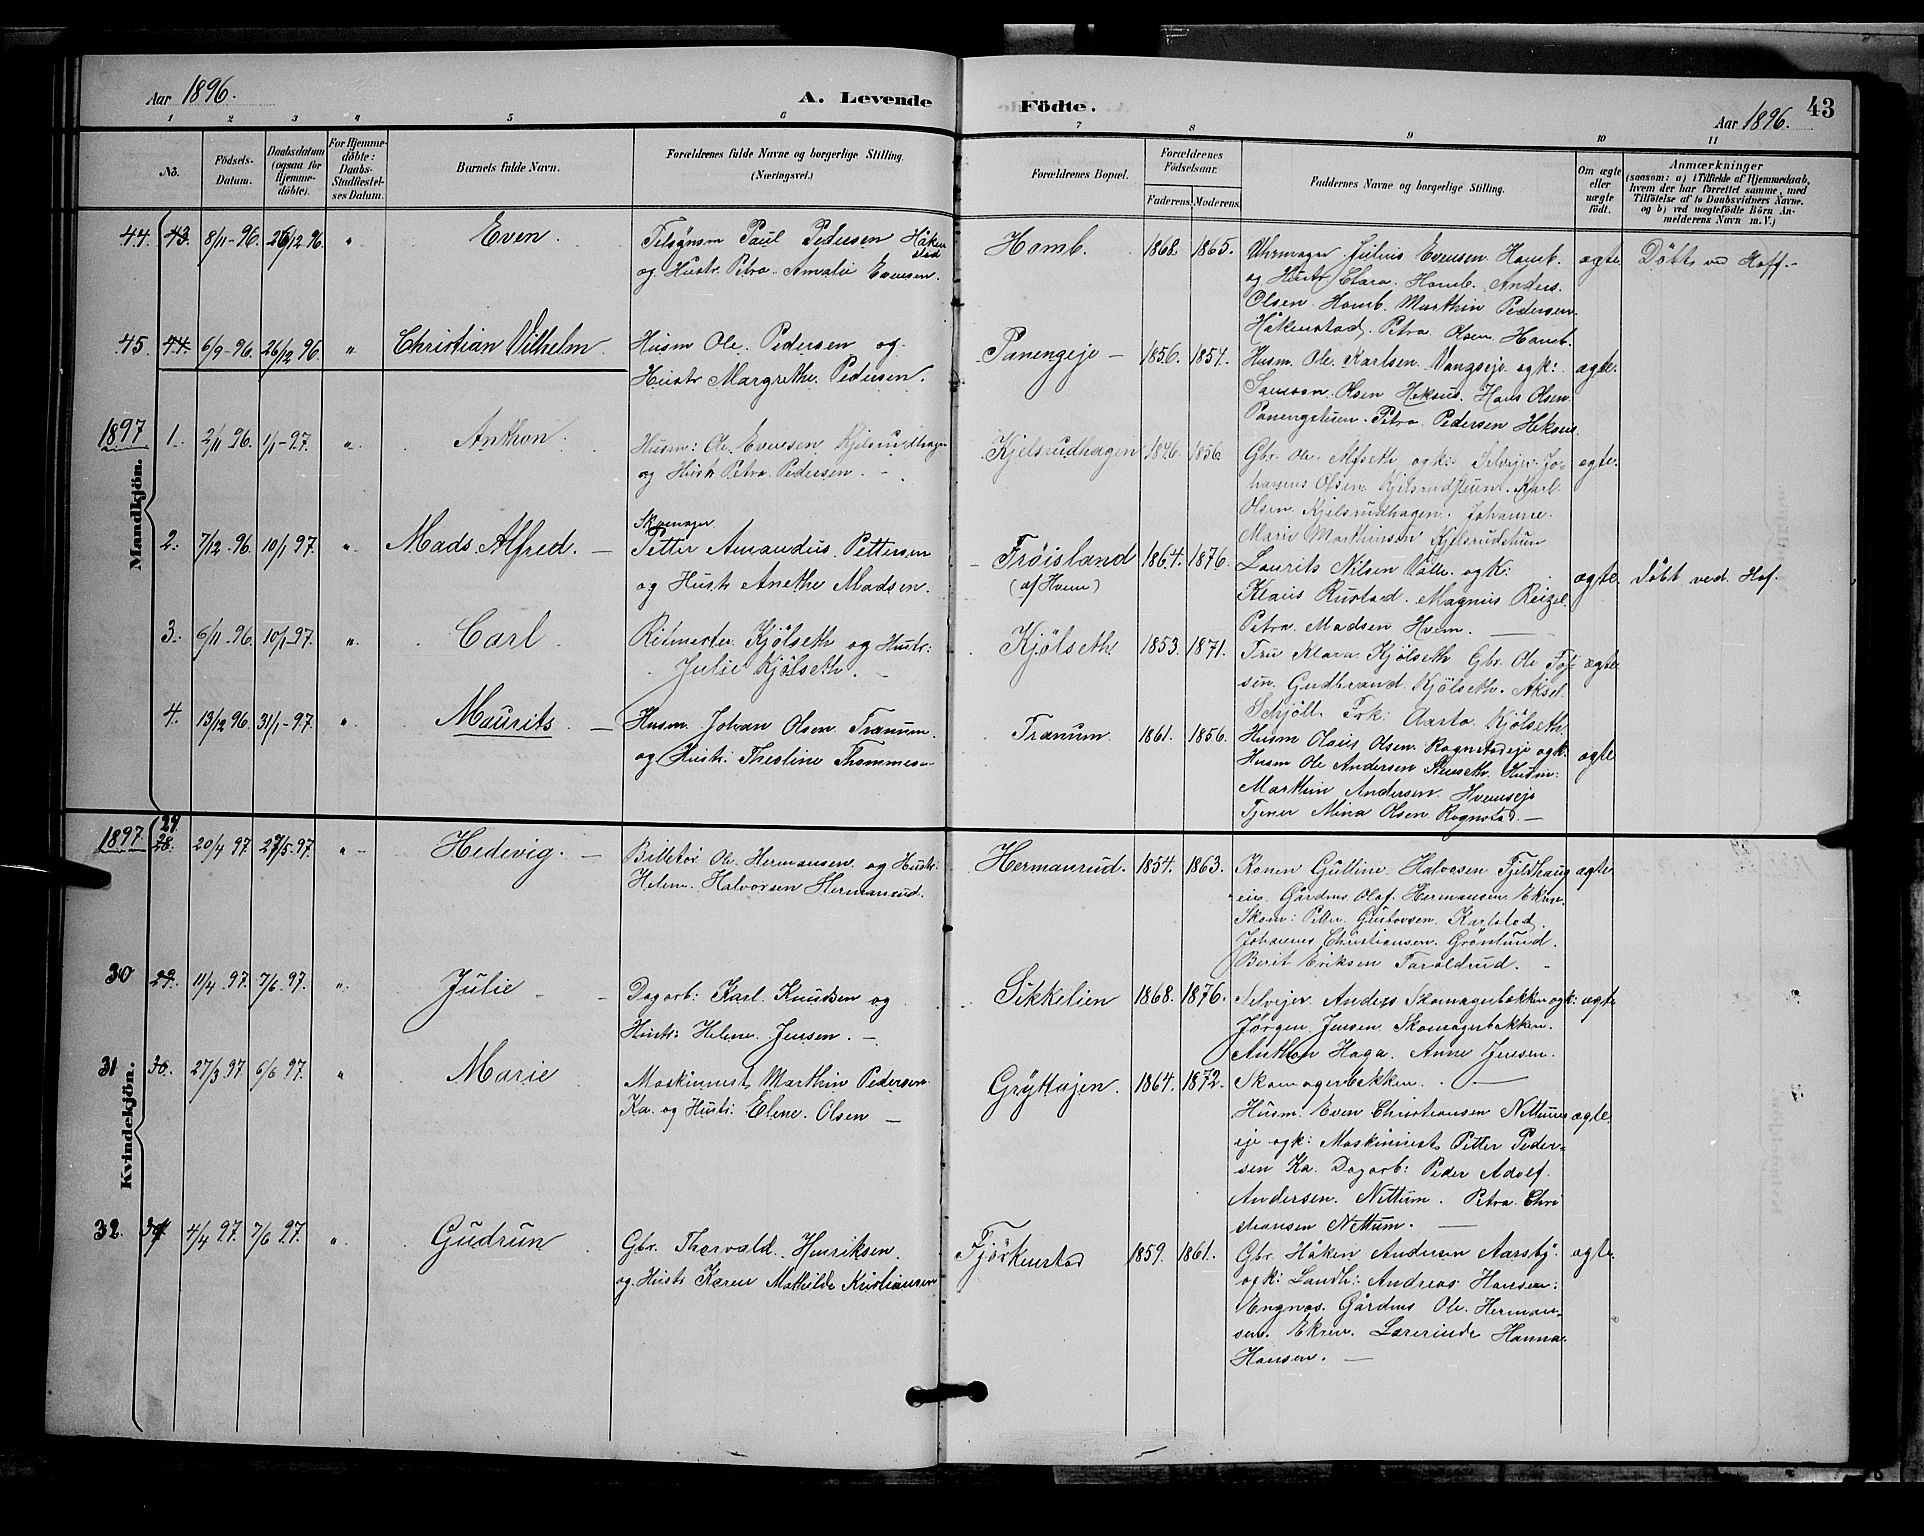 Aar 1896.
A. Levende Födte.
43
Aar 1896.
1 2 3 4 5 6 7 8 9 10 11
No.
Födsels-
Datum.
Daabsdatum
(ogsaa for
Hjemme-
döbte).
For Hjemme-
döbte:
Daabs-
Stadfæstel-
ses Datum.
Barnets fulde Navn.
Forældrenes fulde Navne og borgerlige Stilling.
(Næringsvei.)
Forældrenes Bopæl.
Forældrenes
Födselsaar.
Faderens. Moderens.
Faddernes Navne og borgerlige Stilling.
Om ægte
eller
uægte
födt.
Anmærkninger
(saasom: a) i Tilfælde af Hjemmedaab,
hvem der har forrettet samme, med
Tilföielse af to Daabsvidners Navne,
og b) ved uægtefödte Börn An-
melderens Navn m. V.)
Mandkjön.
44. 43. 8/11-96. 26/12 96. " Even
Paul Pedersen Håken
stad
og Hustr. Petra Amalie Evensen.
Homb. 1868. 1865.
Uhrmager Julius Evensen Homb.
og Hustr Clara Homb. Anders
Olsen Homb Marthin Pedersen
Håkenstad. Petra Olsen Homb.
ægte
Döbt ved Hoff.
45. 44. 6/9-96. 26/12 96. " Christian Vilhelm
Husm Ole Pedersen og
Hustr Margrethe Pedersen.
Panengeje 1856. 1854.
Husm. Ole Karlsen Vangseje ogk:
Olsen Heksus. Hans Olsen
Petra Pedersen Heksus.
ægte.
1897 1. 2/11 96. 1/1-97. " Anthon.
Husm: Ole Evensen Kjelsrudhagen
og Hustr Petra Pedersen. -
Kjelsrudhagen 1846. 1856
Gbr. Ole Alfseth ogk: Selvejer Jo-
hannes Olsen Kjelsrudstuen. Karl
Olsen Kjelsrudhagen. Johanne
Marie Marthinsen Kjelsrudstuen
ægte.
2. 7/12-96. 10/1 97. " Mads Alfred. -
Skomager
Petter Amandus Pettersen
og Hustr Anethe Madsen.
Fröisland
(af Hvem)
1864. 1876.
Laurits Nilsen Valle. ogk:
Klaus Rustad. Magnus Reizel.
Petra Madsen Hvem. -
ægte
Döbt ved Hof.
3. 6/11-96. 10/1-97. " Carl
Ritmester Kjölseth og Hustr:
Julie Kjölseth. -
Kjölseth 1853. 1871.
Fru Klara Kjölseth Gbr. Ole Tof-
sen. Gudbrand Kjölseth. Aksel
Schjöll. Frk: Aasta Kjölseth.
ægte
4. 13/12 96. 31/1-97. " Maurits -
Husm. Johan Olsen Tranum.
og Hustr: Theoline Thommesen
Tranum. 1861. 1856.
Husm Olaus Olsen. Rognstadeje ogk:
Husm Ole Andersen Husm:
Marthin Andersen. Hvemseje
Tjener Mina Olsen Rognstad. -
ægte
Kvindekjön.
1897. 29 28. 20/4 97. 27/5.97. " Hedevig. -
Billetör Ole Hermansen og Hustr:
Helene Halvorsen Hermanrud.
Hermanrud. 1854. 1863.
Konen Gulline Halvorsen Fjeldhaug
eie. Gårdens Olaf Hermansen Ekren
Skom: Petter Gustavsen. Karlstad.
Johannes Christiansen. Grönlund.
Berit Eriksen Taraldrud. -
ægte
30 29. 11/4 97. 7/6. 97. " Julie -
Dagarb: Karl Knudsen og
Hustr: Helene Jensen. -
Sikkelien 1868. 1876.
Selvejer Anders Skomagerbakken ogk:
Jörgen Jensen Skomagerbakken.
Anthon Haga. Anne Jensen
Skomagerbakken. -
ægte
31 30. 27/3 97. 6/6 97. " Marie
Maskinnist Marthin Pedersen
Ka. og Hustr: Elene Olsen -
Gryttajen. 1864. 1872.
Husm. Even Christiansen Nettums
eje ogk: Maskinnist Petter Peder-
sen Ka. Dagarb: Peder Adolf
Andersen. Nettum. Petra Chri
stiansen Nettum. -
ægte.
32. 31 4/4 97. 7/6 97. " Gudrun
Gbr. Thorvald Henriksen
og Hustr Karen Mathilde Kristiansen
Fjörkenstad 1859. 1861.
Gbr. Håken Andersen Aarsby.
ogk: Landh: Andreas Hansen.
Engnæs. Gårdens Ole Herman-
sen. Ekren. Lærerinde Hanna
Hansen. -
ægte.